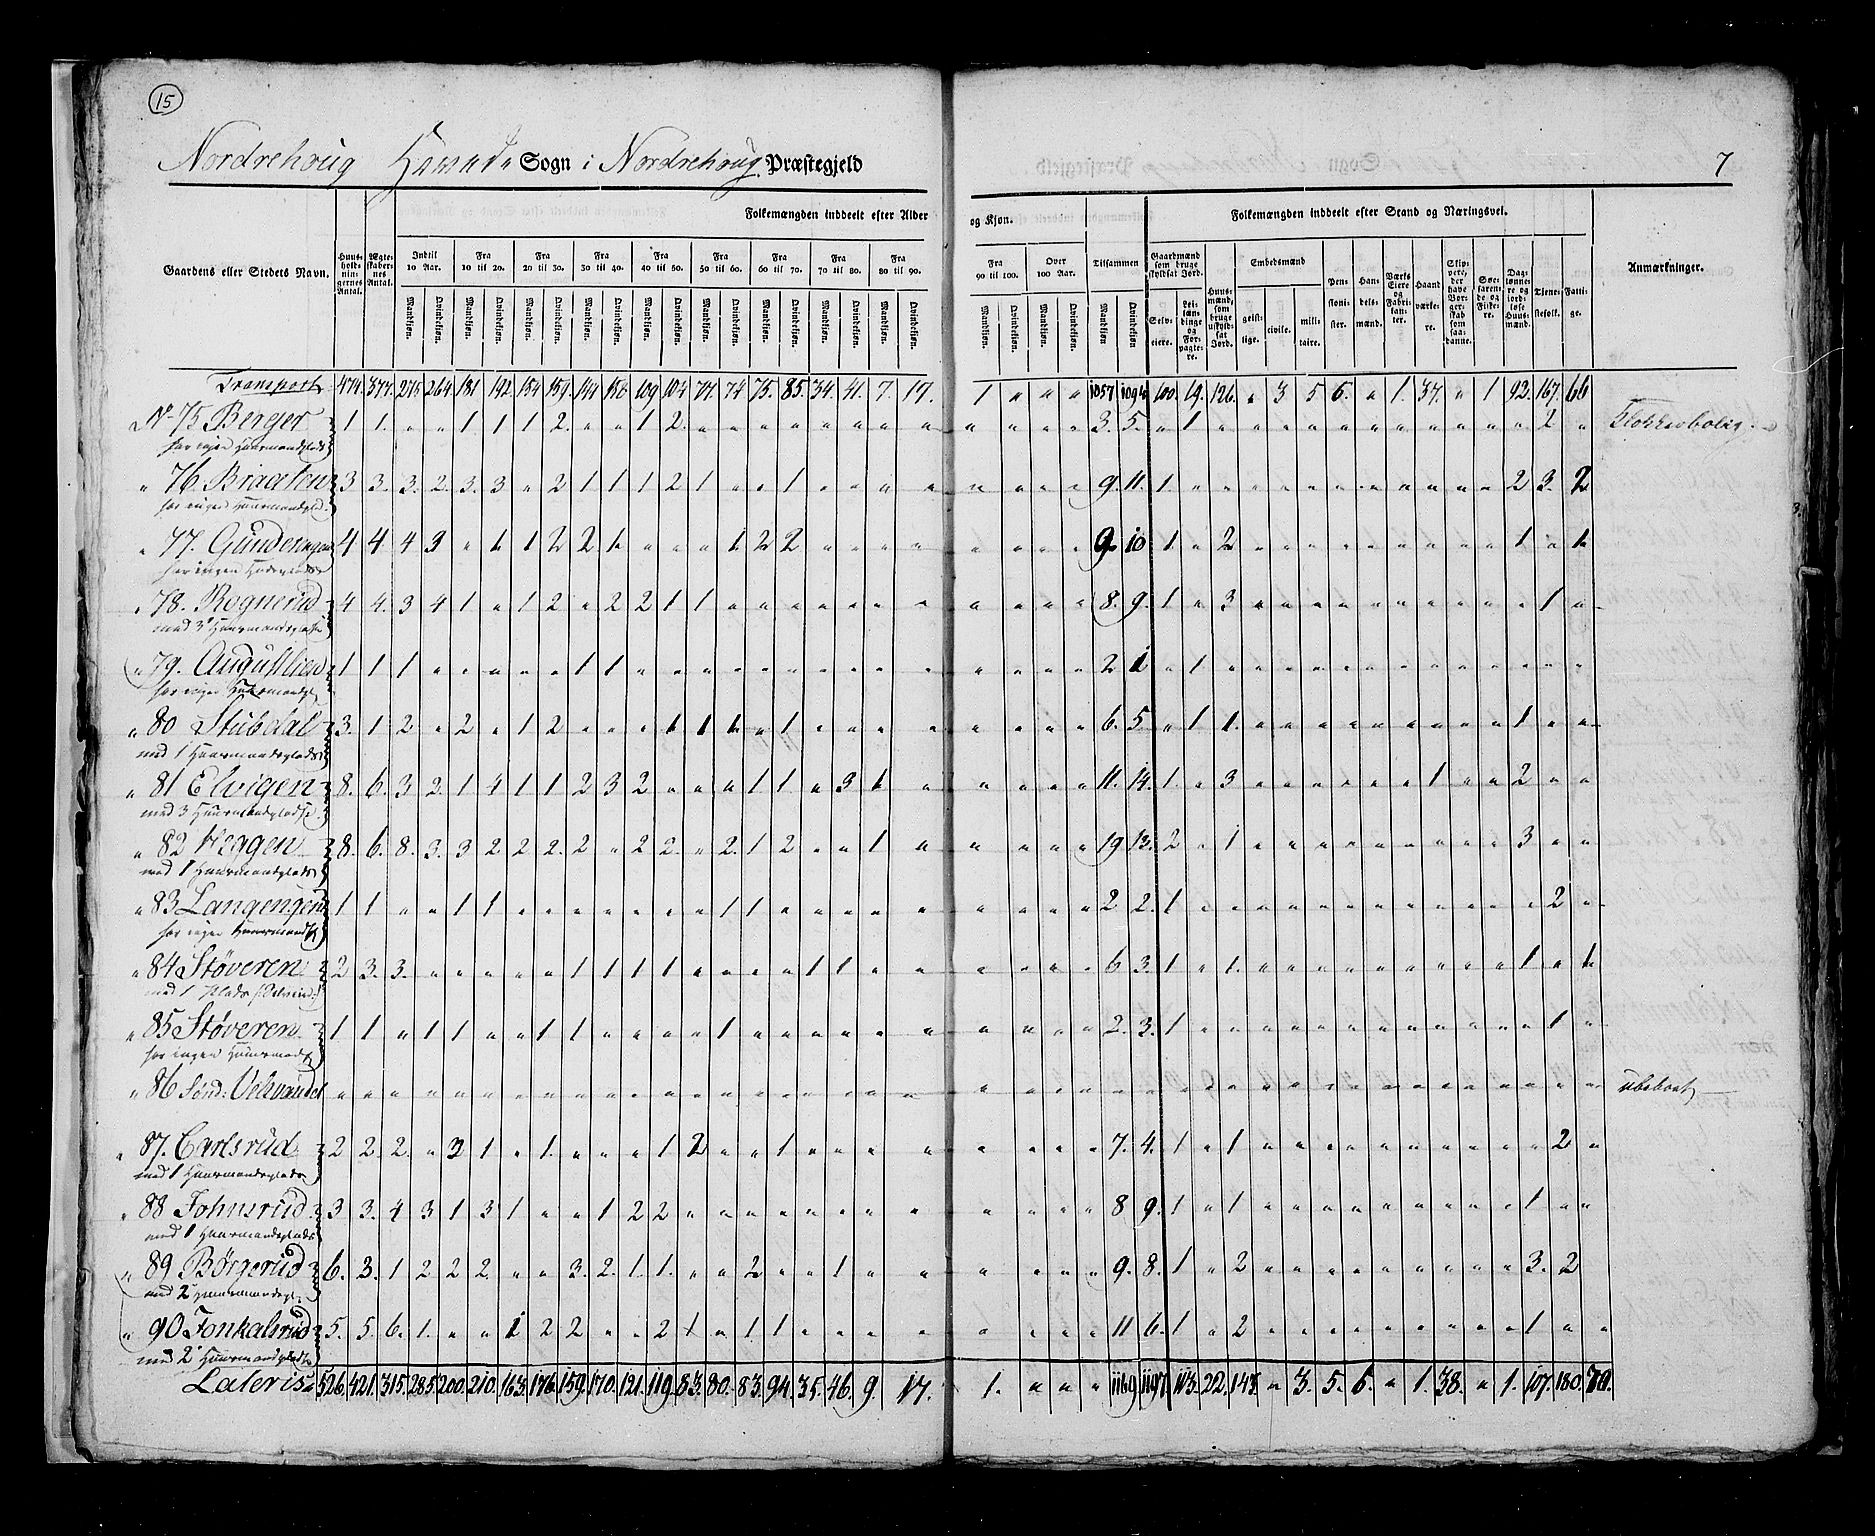 15
7
Nordrehoug Sogn i Nordrehoug Præstegjeld
Folkemængden inddeelt efter Alder og Kjøn.
Folkemængden inddeelt efter Stand og Næringsvei.
Gaardens eller Stedets Navn.
Huusholdningernes Antal.
Ægteskabernes Antal.
Indtil 10 Aar. Fra 10 til 20. Fra 20 til 30. Fra 30 til 40. Fra 40 til 50. Fra 50 til 60. Fra 60 til 70. Fra 70 til 80. Fra 80 til 90.
Fra 90 til 100. Over 100 Aar. Tilsammen
Mandkjøn. Qvindekjøn.
Gaardmænd som bruge skyldsat Jord.
Selveiere. Leilændinge og Forpagtere.
Huusmænd, som bruge uskyldsat Jord.
Embedsmænd
geistlige. civile. militaire.
Pensionister. Handelsmænd. Værks Eiere og Fabrikanter. Haandværkere. Skippere, der have Borgerskab som saadanne. Søefarende og Fiskere. Daglønnere og jordløse Huusmænd. Tjenestefolk. Fattige.
Anmærkninger.
Transport 474. 377. 264. 181. 192. 154 159. 109 104 74 75. 85. 34. 41. 7. 17. 1 " " " 1057 100. 19. 126. " 3 5 6. " 1. 37. " 1 92. 167. 66
No 75 Berger 1 1. " " 1 1 1 2. " " 1 2. " " " " " " " " " " " " 3. 5. " 1 " " " " " " " " " " " 2 "
" 76. Braaten 3 3. 3. 2. 3. 3 " 2 1 1 1 2 1 " " 1 " " " " " " " " 9. 11. 1. " " " " " " " " " " " 2 3. 2
" 77. 4 4 4 3 " 1 1 2 2 1 " " " 1 2 2 " " " " " " " " 9. 10 1 " 2 " " " " " " " " " 1 " 1
" 78. Rognerud 4 4. 3 4 1 " 1 2 " 2 2 1 1 " " " " " " " " " " " 8. 9. 1 " 3 " " " " " " " " " " 1 "
med 3 Huusmandspladse
" 79. Augustlien 1 1 1 " " " " " 1 1 " " " " " " " " " " " " " " 2 1 " 1 " " " " " " " " " " " " "
" 80 Stubdal 3. 1 2 " 2 " 1 2 " " " 1 1 1 " 1 " " " " " " " " 6. 5. " 1 1. " " " " " " " " " 1 " "
med 1 Huusmandsplads
" 81 Elvigen 8. 6. 3 3. 1 4 1 1 2 3 2 " " " 1 1 " 3 1 " " " " " 11. 14. 1. " 3 " " " " " " 1 " " 2 " "
med 3 Huusmandspladse
" 82 Heggen 8. 6. 8. 3. 3 2 2 2. 2 " 2 2. " 2. 1 2 " " 1 " " " " " 19 13. 2 " 1 " " " " " " " " " 3 " "
med 1 Huusmandsplads
" 83 Langengen 1 1 " " 1 1 " " " " " " " 1 1 " " " " " " " " " 2 2. 1 " " " " " " " " " " " " 2 "
" 84 Støveren 2 3. 3. " " " " " 1 1 1 1 " " " 1 1 " " " " " " " 6 3. 1 " 1 " " " " " " " " " 1 " 1
" 85 Støveren 1 1 " 1 1 " 1 1 " " " " 1 " " " " " " " " " " " 2. 3. 1 " " " " " " " " " " " " 1 "
" 86 Sønd: " " " " " " " " " " " " " " " " " " " " " " " " " " " " " " " " " " " " " " " " " ubeboet
" 87. Carlsrud 2 2. 2 " 2 1 " 1. " " " 1 2 " " 1 " " " " " " " " 7. 4. 1 " 1 " " " " " " " " " " 2 "
med 1 Huusmandsplads
" 88 Johnsrud 3 3. 4 3 1 3 1 " " 1 2 2 " " " " " " " " " " " " 8 9. 1 " 1 " " " " " " " " " 1 " "
med 1 Huusmandsplads
" 89 Børgerud 6. 3. 1 2 2 2 " " 3. 2. 1. 1. " " 2 " " 1 " " " " " " 9. 8. 1 " 2 " " " " " " " " " 3. 2
" 90 Fonkalsrud 5. 5. 6. 1. " " 1 2 2 " " 2 1 " 1 1 " " " " " " " " 11 6. 1 " 2 " " " " " " " " " 1 " "
Lateris 526. 421. 315. 285. 200. 210. 163. 176. 159. 170. 121. 119. 83. 80. 83. 94. 35. 46. 9. 17. 1. " " " 1169 1197 113. 22. " 3. 5. 6. " 1. 38. " 1. 107. 180.